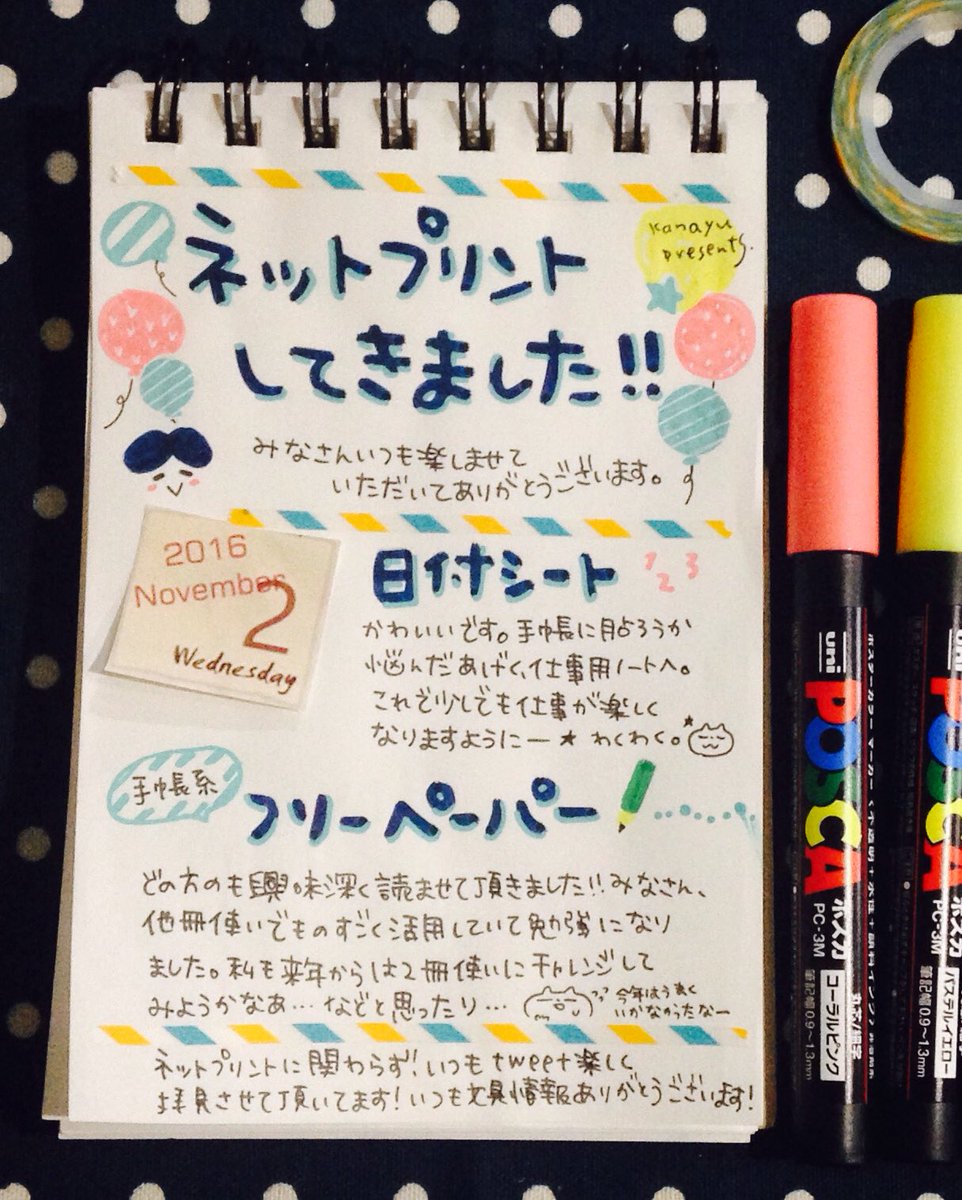 ネットプリント
してきました!!
kanayu
presents.
みなさんいつも楽しませて
いただいてありがとうございます。
2016
November
2
Wednesday
日付シート
1 2 3
かわいいです。手帳に貼ろうか
悩んだあげく、仕事用ノートへ。
これで少しでも仕事が楽しく
なりますようにー★ わくわく。
手帳系
フリーペーパー
どの方のも興味深く読ませて頂きました!!みなさん、
他冊使いでものすごく活用していて勉強になり
ました。私も来年からは2冊使いにチャレンジして
みようかなあ…などと思ったり…
今年はうまく
いかなかったなー
ネットプリントに関わらず!いつもtweet楽しく
拝見させて頂いてます!いつも文具情報ありがとうございます!
uni
POSCA
ポスカ
PC-3M
コーラルピンク
筆記幅0.9〜1.3mm
POSCA
ポスカ
PC-3M
パステルイエロー
筆記幅0.9〜1.3mm